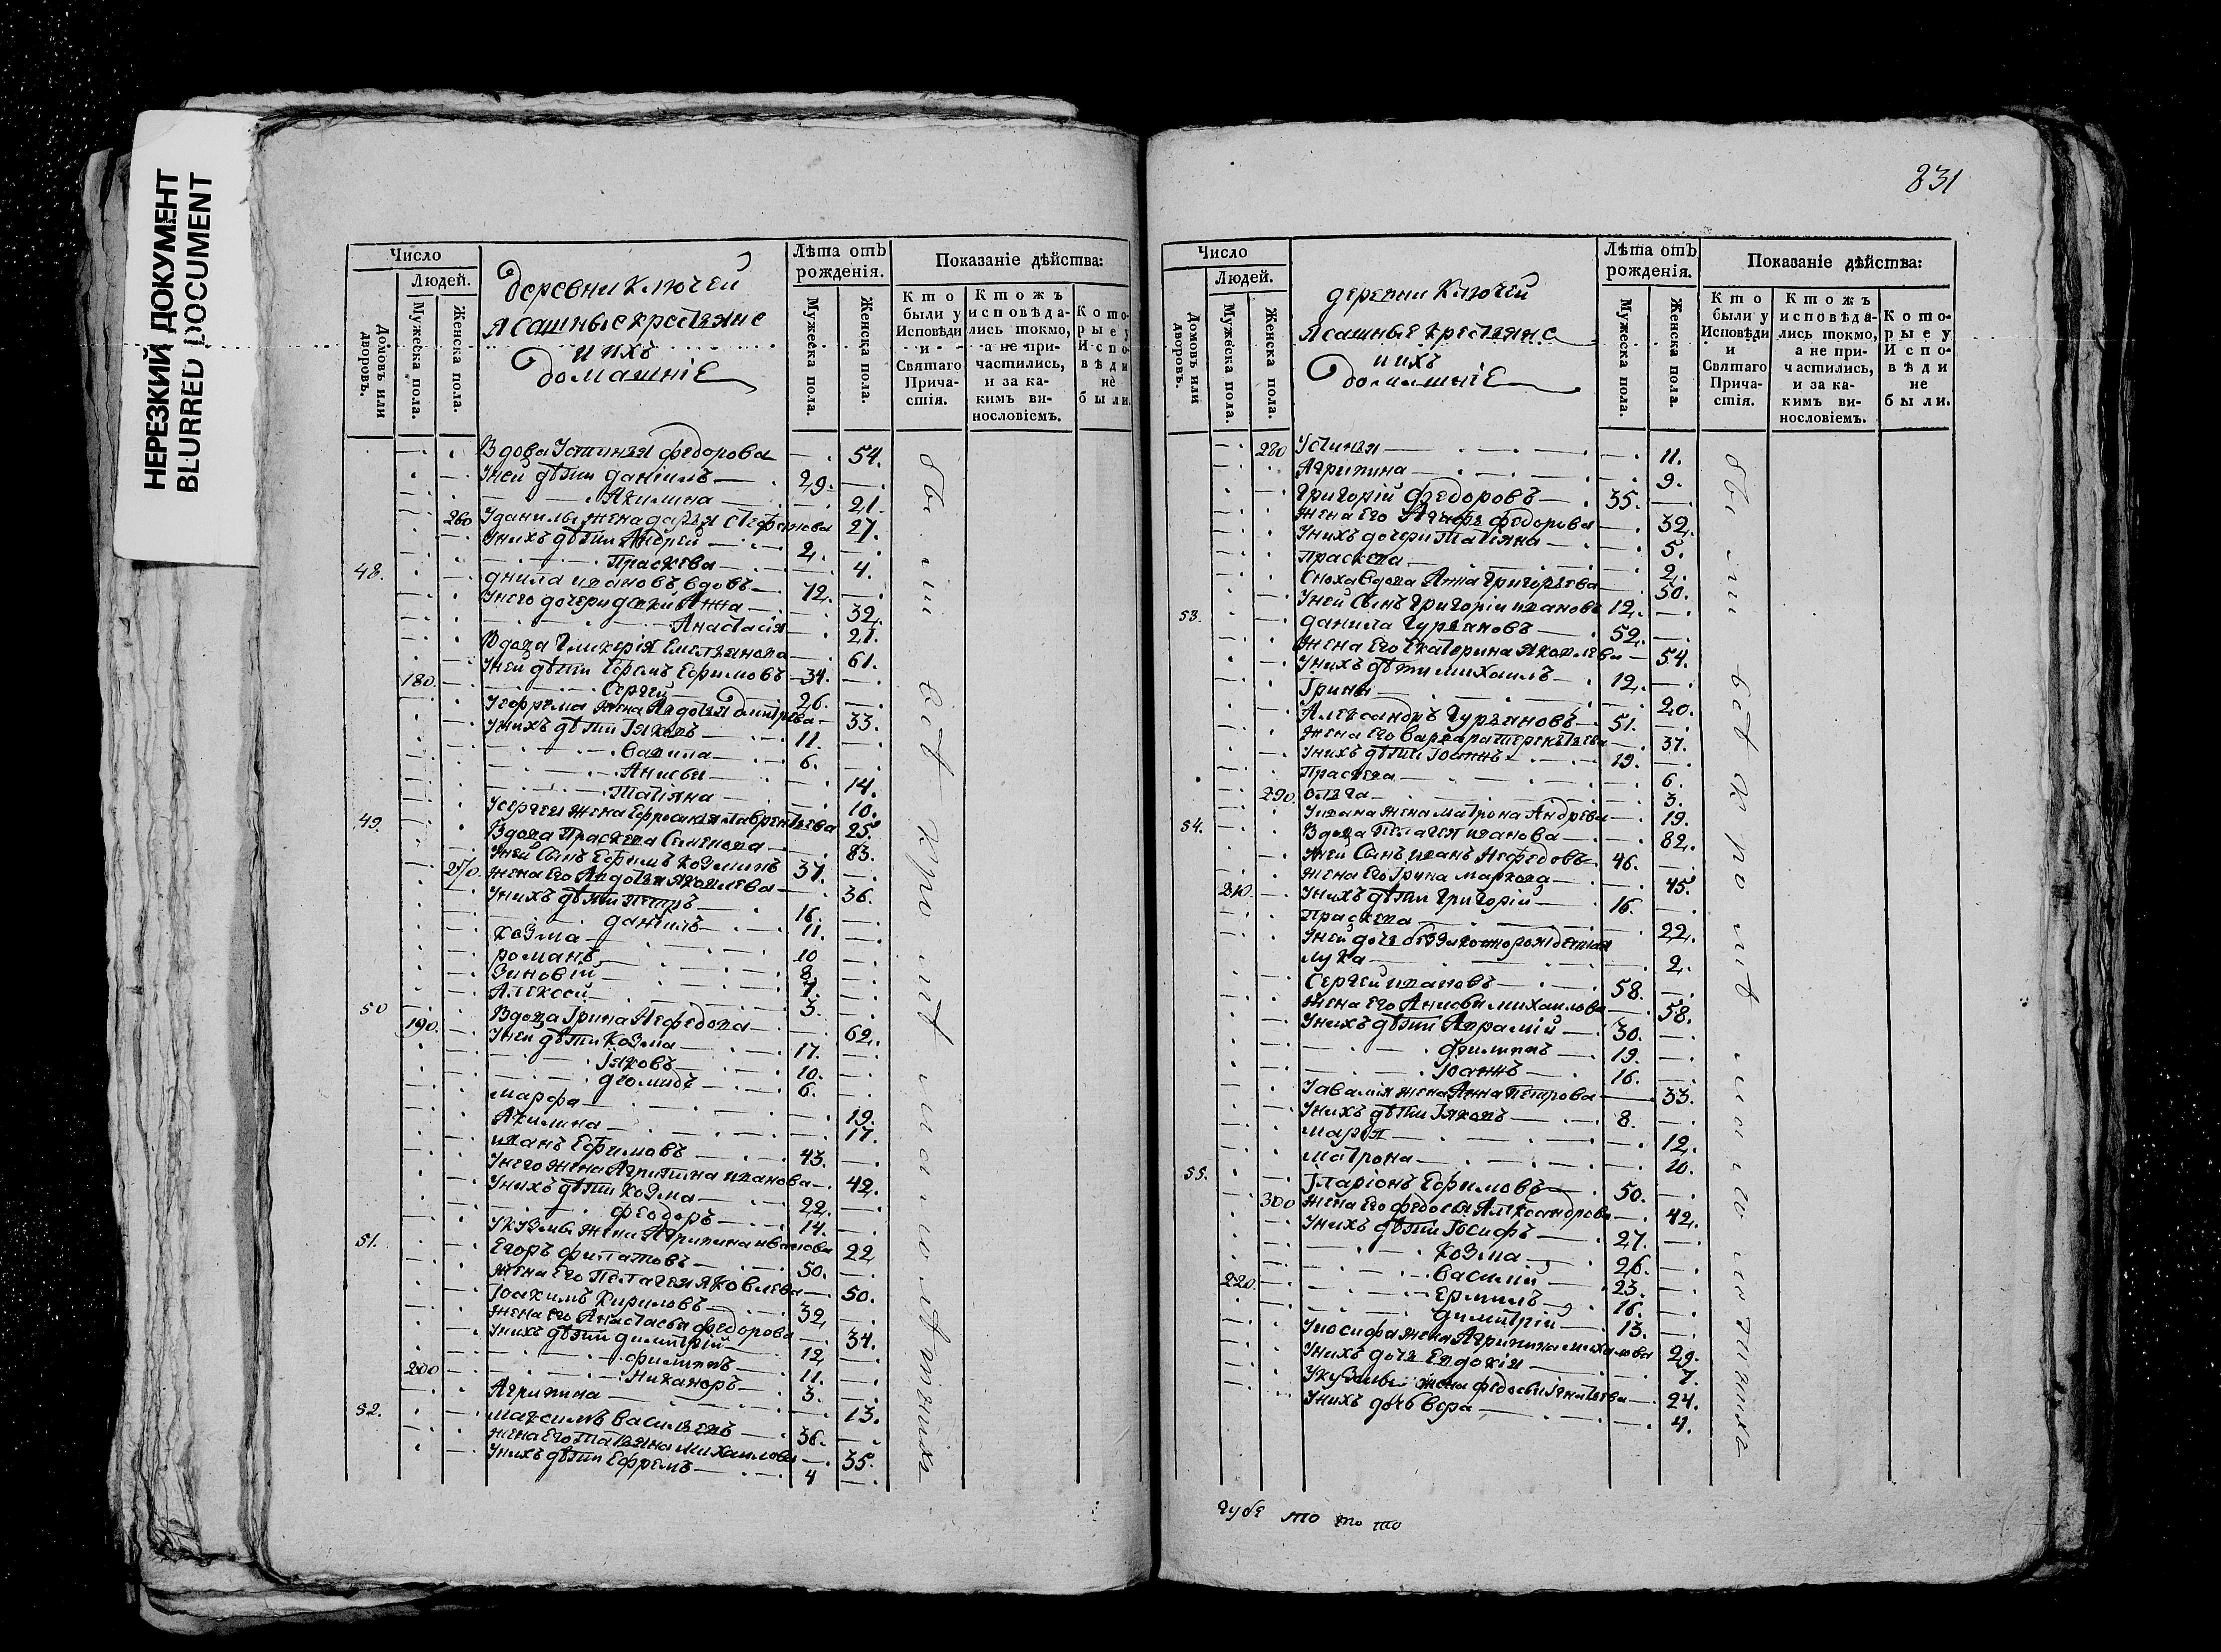 НЕРЕЗКИЙ ДОКУМЕНТ
BLURRED DOCUMENT
Число
Людей.
Домовъ или дворовъ.
Мужеска пола.
Женска пола.
деревни Ключей
ясашные крестьяне
и ихъ
домашнiе
Лѣта отъ рожденiя.
Мужеска пола.
Женска пола.
Показанiе дѣйства:
Кто были у Исповѣди и Святаго Причастiя.
Ктожъ исповѣдались токмо, а не причастились, и за какимъ винословiемъ.
Которые у Исповѣди не были.
Вдова Устинья федорова 54.
Уней дѣти данiилъ 29.
Акилина 21.
260 Уданилы жена дарья Стефанова 27.
Унихъ дѣти Андрей 2.
Прасковa 4.
48. днила ивановъ вдовъ 72.
Унего дочери девки Анна 32.
Анастасiя 21.
Вдова Гликерiя Емельянова 61.
Уней дѣти Ефремъ Ефимовъ 34.
180. Сергей 26.
Уефрема жена Авдотья дмитрева 33.
Унихъ дѣти Iяковъ 11.
Савила 6.
Анисья 14.
Татiяна 10.
Усергея жена Ефросинья Лаврентьева 25.
49. Вдова Прасковa Семенова 83.
Уней Сынъ Ефимъ Козминъ 37.
270. жена Его Авдотья яковлева 36.
Унихъ дѣти Петръ 16.
данiилъ 11.
козма 10
романъ 8.
Зиновiй 7.
Алексей 3.
50 Вдова Iрина Нефедова 62.
190. Уней дѣти козма 17.
Iяковъ 10.
дiомидъ 6.
марфа 19.
Акилина 17.
иванъ Ефимовъ 43.
Унего жена Агрипина иванова 42.
Унихъ дѣти козма 22.
феодоръ 14.
Укузмы жена Агрипина иванова 22
51. Егоръ филатовъ 50.
жена Его Пелагея яковлева 50.
Iоакимъ кириловъ 32
жена его Анастасья федорова 34.
Унихъ дѣти димитрiй 12
филиппъ 11.
200 Никаноръ 3.
Агрипина 13.
52. максимъ васильевъ 36.
жена Его Татьяна михаилова 35.
Унихъ дѣти Ефремъ 4
831
Число
Людей.
Домовъ или дворовъ.
Мужеска пола.
Женска пола.
деревни Ключей
ясашные крестьяне
и ихъ
домашнiе
Лѣта отъ рожденiя.
Мужеска пола.
Женска пола.
Показанiе дѣйства:
Кто были у Исповѣди и Святаго Причастiя.
Ктожъ исповѣдались токмо, а не причастились, и за какимъ винословiемъ.
Которые у Исповѣди не были.
280 Устинья 11.
Агрипина 9.
Григорiй федоровъ 35.
жена Его федорова 32.
Унихъ дочери Татьяна 5.
Прасковa 2.
Сноха вдова Анна григорьева 30.
Уней Сынъ григорiй ивановъ 12.
53. данила гурьяновъ 52.
жена Его Екатерина яковлева 54.
Унихъ дѣти михаилъ 12.
Iрина 20.
Александръ гурьяновъ 51.
жена Его варвара терентьева 37.
Унихъ дѣти Iоаннъ 19.
Прасковa 6.
290. ольга 3.
Уивана жена матрона Андреева 19.
54. Вдова Пелагея иванова 82.
Уней Сынъ иванъ Нефедовъ 46.
жена Его Iрина маркова 45.
210. Унихъ дѣти григорiй 16.
Прасковa 22.
Уней дочь беззаконорожденная
2.
Сергей ивановъ 58.
жена Его Анисья михаилова 58.
Унихъ дѣти Аврамiй 30.
филиппъ 19.
Iоаннъ 16.
жена Анна Петрова 33.
Унихъ дѣти Iяковъ 8.
марья 12.
матрона 10.
55. Iларiонъ Ефимовъ 50.
300 жена Его федосья Александрова 42.
Унихъ дѣти Iосифъ 27.
козма 26.
василiй 23.
220. Ермилъ 16.
димитрiй 13.
Уиосифа жена Агрипина михаилова 29.
Унихъ дочь Евдокiя 7.
Укузмы жена федосья Iгнатьева 24.
Унихъ дочь вера 4.
то то то